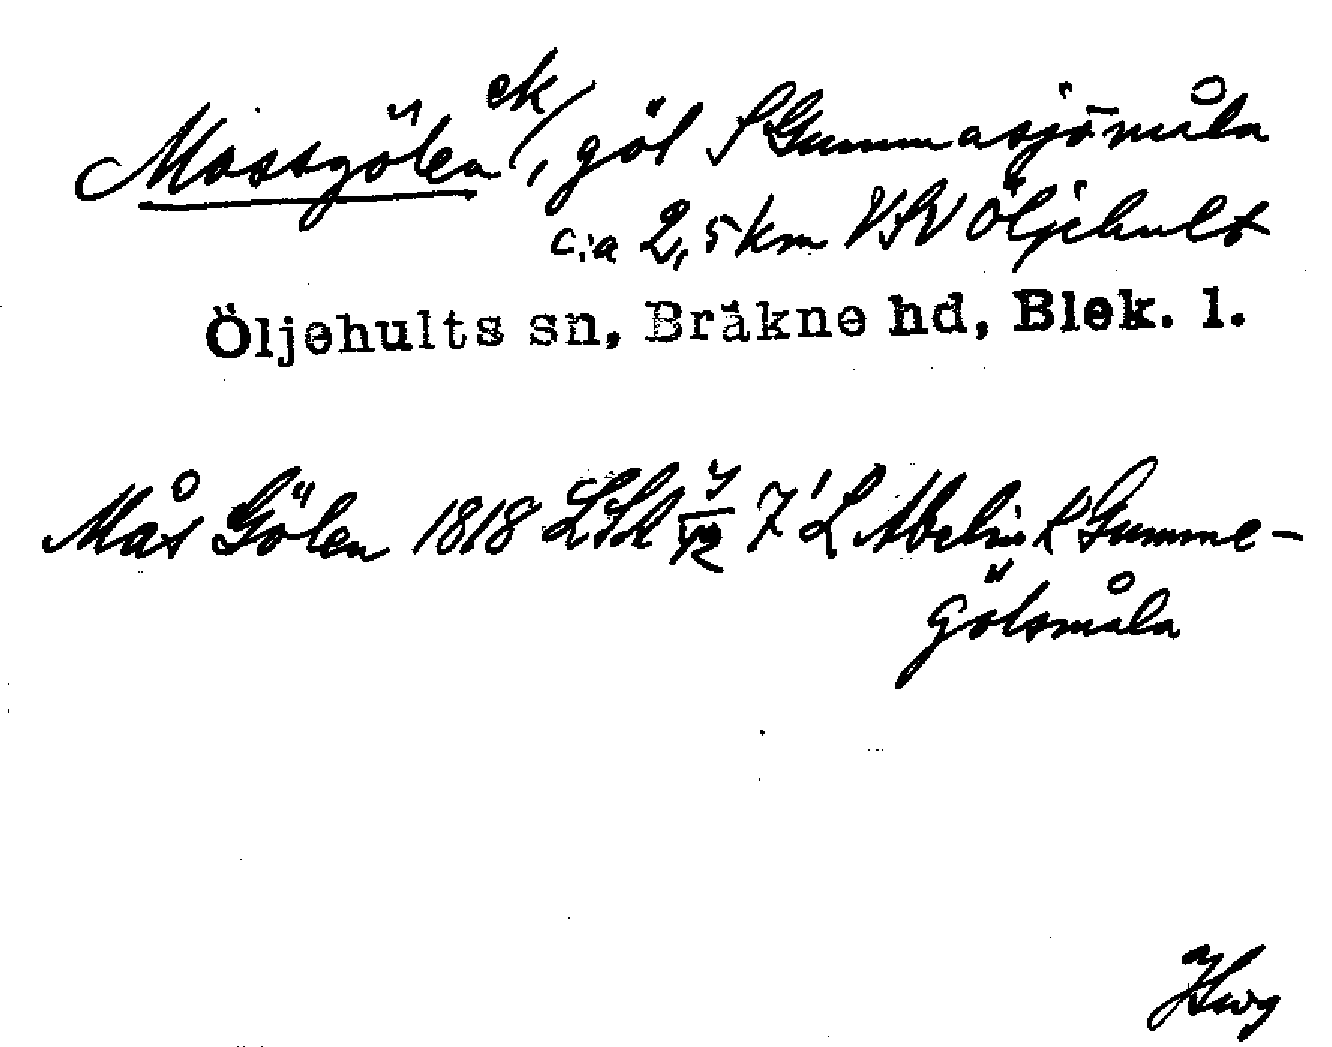 Mossgölen ek/, göl S Gummasjömåla
c:a 2,5 km VSV Öljehult
Öljehults sn, Bräkne hd, Blek. l.
Mås Gölen 1818 LSk 7' L Abelin k Gumme-
gölsmåla